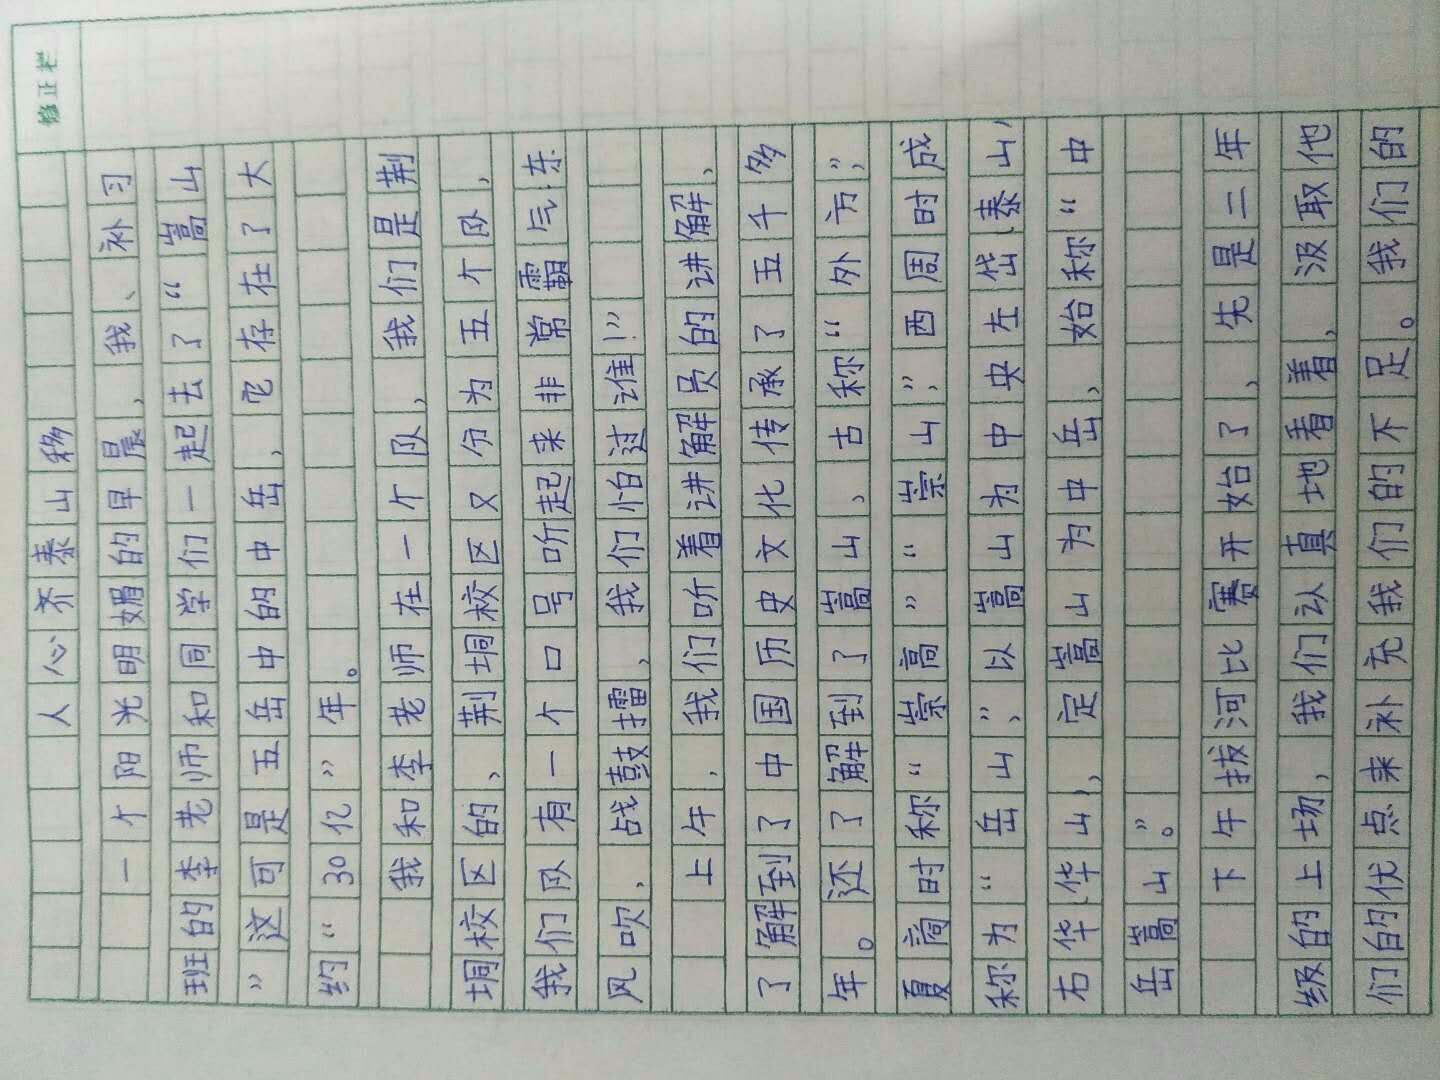 修正栏
人心齐泰山移
一个阳光明媚的早晨,我、补习
班的李老师和同学们一起去了“嵩山
”这可是五岳中的中岳,它存在了大
约“30亿”年。
我和李老师在一个队,我们是荆
垌校区的,荆垌校区又分为五个队,
我们队有一个口号听起来非常霸气:东
风吹,战鼓擂,我们怕过谁!”
上午,我们听着讲解员的讲解,
了解到了中国历史文化传承了五千多
年。还了解到了嵩山,古称“外方”,
夏商时称“崇高”“崇山”,西周时成
称为“岳山”,以嵩山为中央左岱(泰山)
右华(华山),定嵩山为中岳,始称“中
岳嵩山”。
下午拔河比赛开始了,先是二年
级的上场,我们认真地看着,汲取他
们的优点来补充我们的不足。我们的